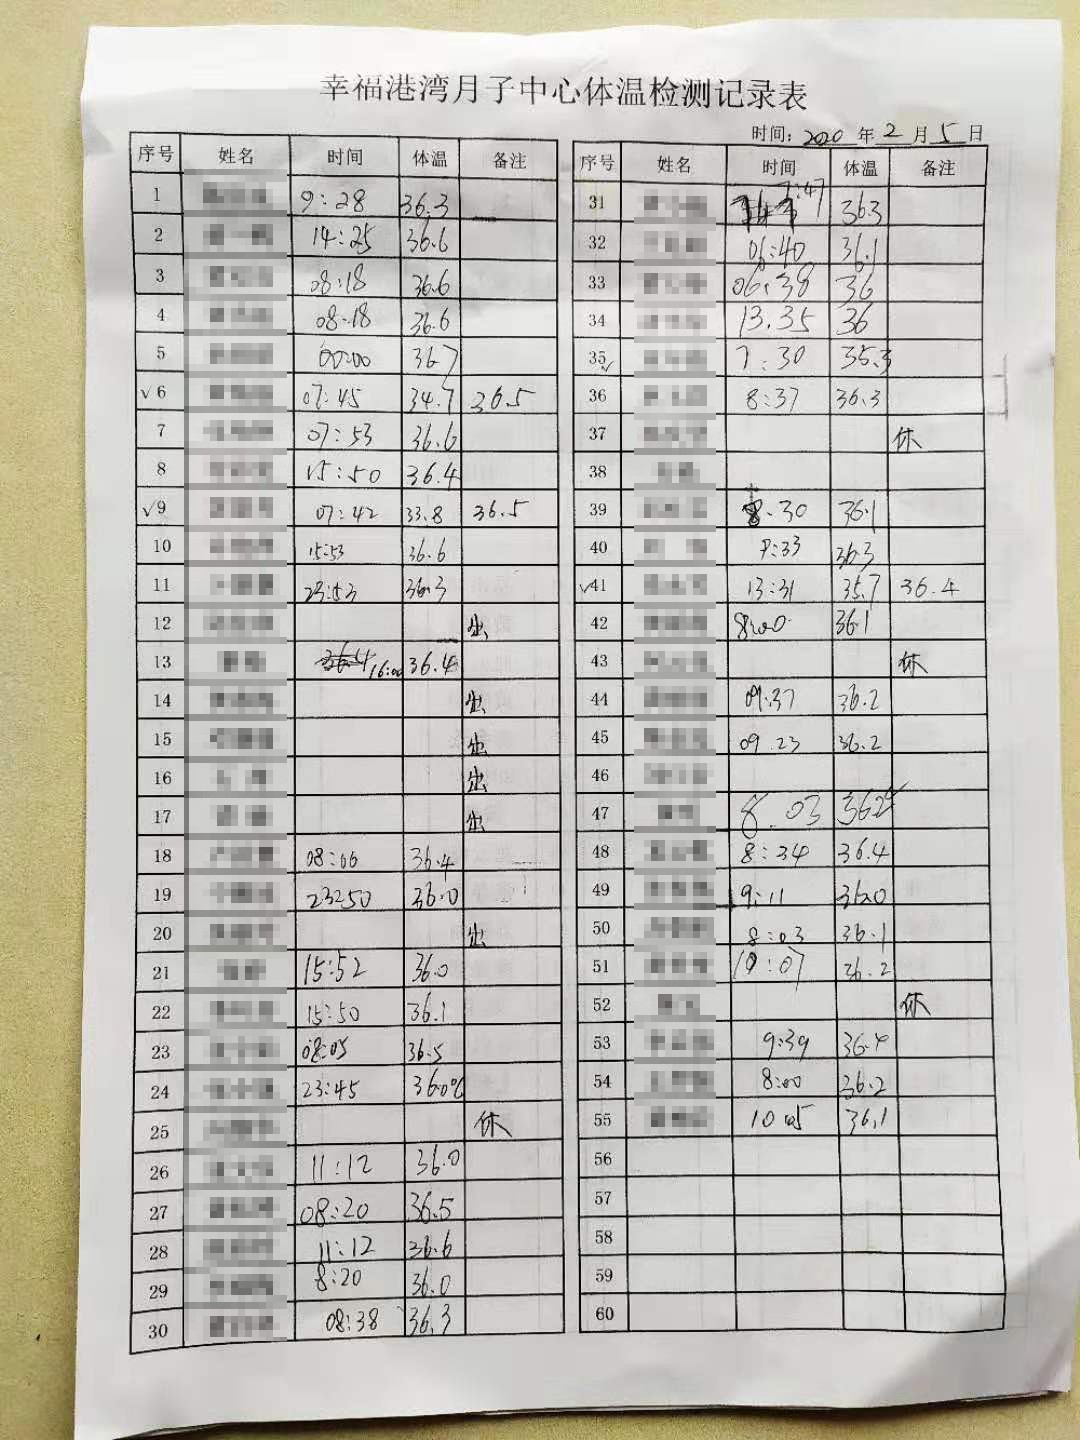 幸福港湾月子中心体温检测记录表
时间：2020 年 2 月 5 日
序号 姓名 时间 体温 备注
1 9:28 36.3
2 14:25 36.6
3 08:18 36.6
4 08:18 36.6
5 00:00 36.7
√6 07:45 34.7 36.5
7 07:53 36.6
8 15:50 36.4
√9 07:42 33.8 36.5
10 15:53 36.6
11 23:53 36.3
12 出
13 16:00 36.4
14 出
15 出
16 出
17 出
18 08:06 36.4
19 23:50 36.0
20 出
21 15:52 36.0
22 15:50 36.1
23 08:05 36.5
24 23:45 36.0℃
25 休
26 11:12 36.0
27 08:20 36.5
28 11:12 36.6
29 8:20 36.0
30 08:38 36.3
序号 姓名 时间 体温 备注
31 7:47 36.3
32 06:40 36.1
33 06:38 36
34 13.35 36
35√ 7:30 35.3
36 8:37 36.3
37 休
38
39 8.30 36.1
40 36.3
√41 13:31 35.7 36.4
42 8:00 36.1
43 休
44 09:37 36.2
45 09.23 36.2
46
47 8.03
48 8:34 36.4
49 9:11 36.0
50 8:03 36.1
51 36.2
52 休
53 9:39 36.4
54 8:00 36.2
55 10:05 36.1
56
57
58
59
60